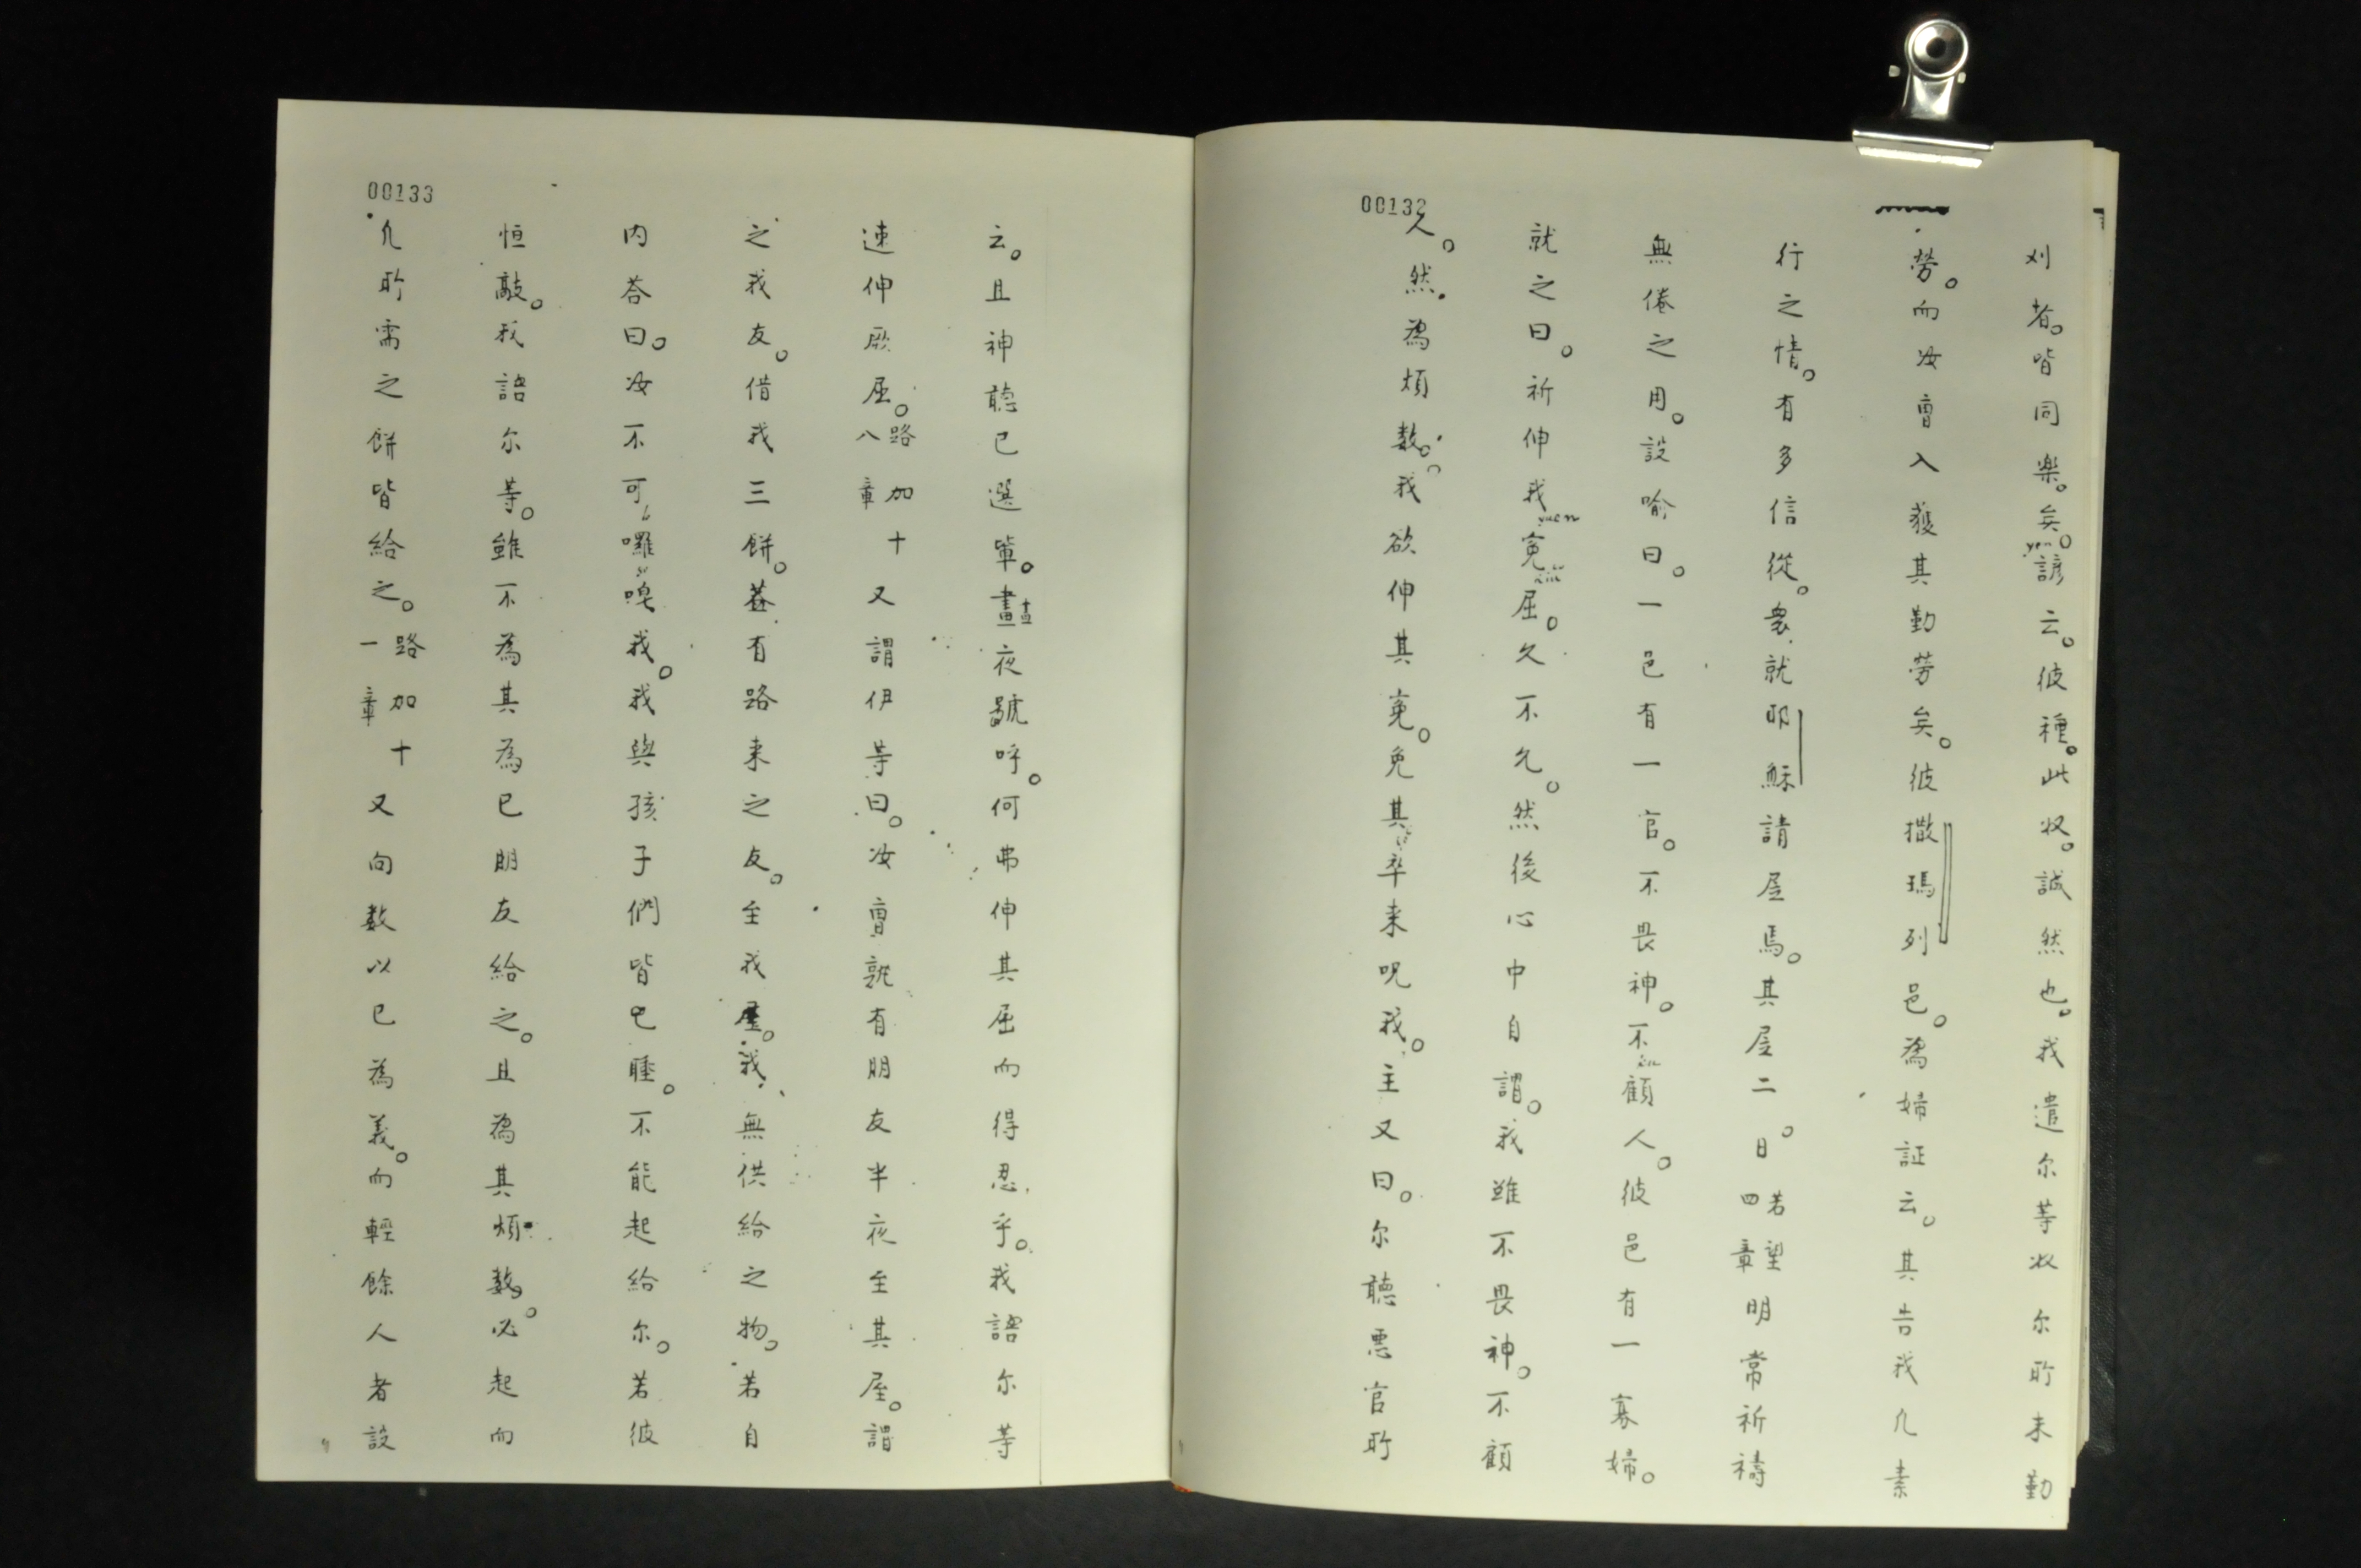 00132
刈者。皆同樂。矣。諺云。彼種。此収。誠然也。我遣尔等収尔所未勤
yen
勞。而汝曹入獲其勤劳矣。彼撒瑪列邑。為婦証云。其告我凡素
行之情。有多信從。衆就耶穌請屋焉。其屋二日。若望四章明常祈禱
無倦之用。設喻曰。一邑有一官。不畏神。不顧人。彼邑有一寡婦。
就之曰。祈伸我寃屈。久不允。然後心中自謂。我雖不畏神。不顧
yuen
人。然為煩数。我欲伸其寃。免其卒来呪我。主又曰。尔聽悪官所
00133
云。且神聽已選軰。晝夜號呼。何弗伸其屈而得忍乎。我語尔等
速伸厥屈。路加十八章又謂伊等曰。汝曹孰有朋友半夜至其屋。謂
之我友。借我三餅。葢有路来之友。至我屋。我無供給之物。若自
内荅曰。汝不可囉唣我。我與孩子們皆已睡。不能起給尔。若彼
恒敲。我語尔等。雖不為其為已朋友給之。且為其煩数。必起而
凡所需之餅皆給之。路加十一章又向数以已為義。而輕餘人者設